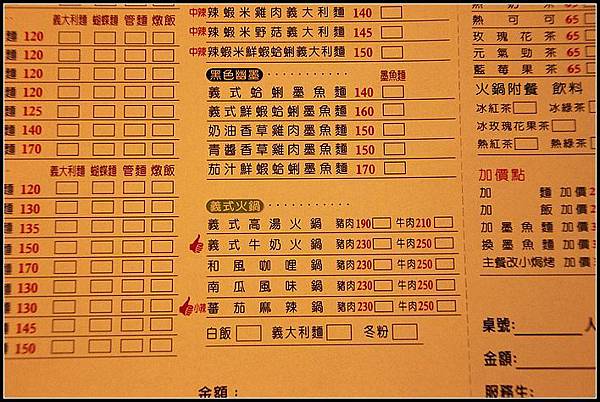 義大利麵 蝴蝶麵 管麵 燉飯
麵 120
麵 120
麵 120
麵 120
麵 125
麵 140
麵 170
義大利麵 蝴蝶麵 管麵 燉飯
麵 120
麵 130
麵 135
麵 150
麵 170
麵 130
麵 130
麵 145
麵 150
中辣 辣蝦米雞肉義大利麵 140
中辣 辣蝦米野菇義大利麵 145
中辣 辣蝦米鮮蝦蛤蜊義大利麵 150
黑色幽墨 ············ 墨魚麵
義式蛤蜊墨魚麵 140
義式鮮蝦蛤蜊墨魚麵 160
奶油香草雞肉墨魚麵 150
青醬香草雞肉墨魚麵 150
茄汁鮮蝦蛤蜊墨魚麵 170
義式火鍋 ············
義式高湯火鍋 豬肉190 牛肉210
義式牛奶火鍋 豬肉230 牛肉250
和風咖哩鍋 豬肉230 牛肉250
南瓜風味鍋 豬肉230 牛肉250
小辣 蕃茄麻辣鍋 豬肉230 牛肉250
白飯 義大利麵 冬粉
金額：
熱奶茶 65
熱可可 65
玫瑰花茶 65
元氣勁茶 65
藍莓果茶 65
火鍋附餐 飲料
冰紅茶 冰綠茶
冰玫瑰花果茶
熱紅茶 熱綠茶
加價點
加麵 加價2
加飯 加價2
加墨魚麵 加價
換墨魚麵 加價
主餐改小焗烤 加價
桌號: 人
金額:
服務生: